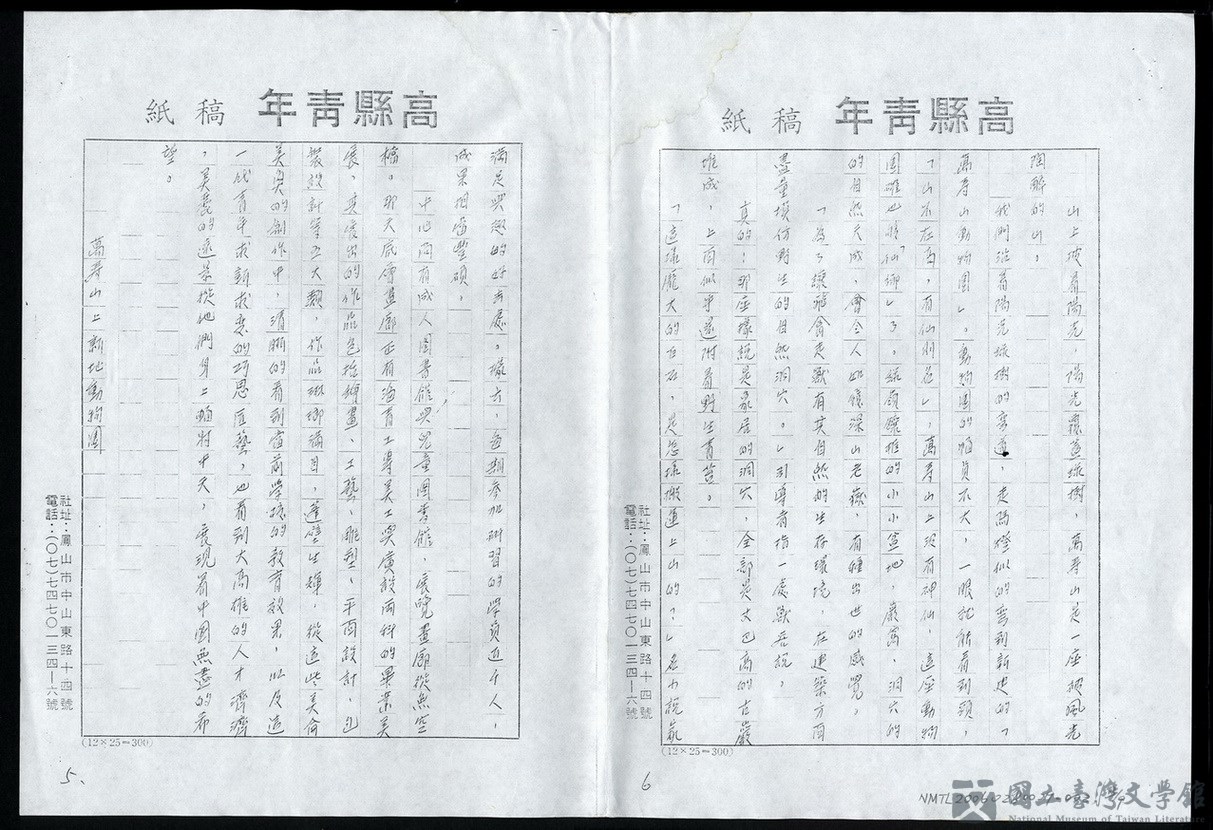 高縣青年 稿紙
滿足興趣的好去處。據云，每期參加研習的學員近千人，
成果相當豐碩。
中心內有成人圖書館與兒童圖書館，展覽畫廊從無空
檔。那天底層畫廊正有海青工專美工與廣設兩科的畢業美
展。其展出的作品包括繪畫、工藝、雕塑、平面設計、包
裝設計等五大類，作品琳瑯滿目，蓬壁生輝，從這些美侖
美奐的創作中，清晰的看到當前學校的教育效果，以及這
一代青年求新求變的巧思匠藝，也看到大高雄的人才濟濟
，美麗的遠景從他們身上幅射半天，展現着中國無盡的希
望。
萬壽山上新地動物園
社址：鳳山市中山東路十四號
電話：（〇七）七四七〇一三四—六號
(12×25=300)
5、
高縣青年 稿紙
山上披着陽光，陽光覆蓋綠樹，萬壽山是一座被風光
陶醉的山。
我們沿着陽光綠樹的彎道，走馬燈似的彎到新史的「
萬壽山動物園」。動物園的幅員不大，一眼就能看到頭，
「山不在高，有仙則名」，萬壽山上沒有神仙，這座動物
園確也夠「仙鄉」了。綠嶺的小小盆地，洞穴的
的自然天成，會令人如臨深山老嶽，有種出世的感覺。
「為了讓飛禽走獸有其自然的生存環境，在建築方面
盡量模仿野生的自然洞穴。」引導者指一處獸舍說。
真的！那座據說是的洞穴，全部是丈巴高的古巖
堆成，上面似乎還附着野生青苔。
「這樣龐大的古石，是怎樣搬運上山的？」
社址：鳳山市中山東路十四號
電話：（〇七）七四七〇一三四—六號
(12×25=300)
6
國立臺灣文學館
National Museum of Taiwan Literature